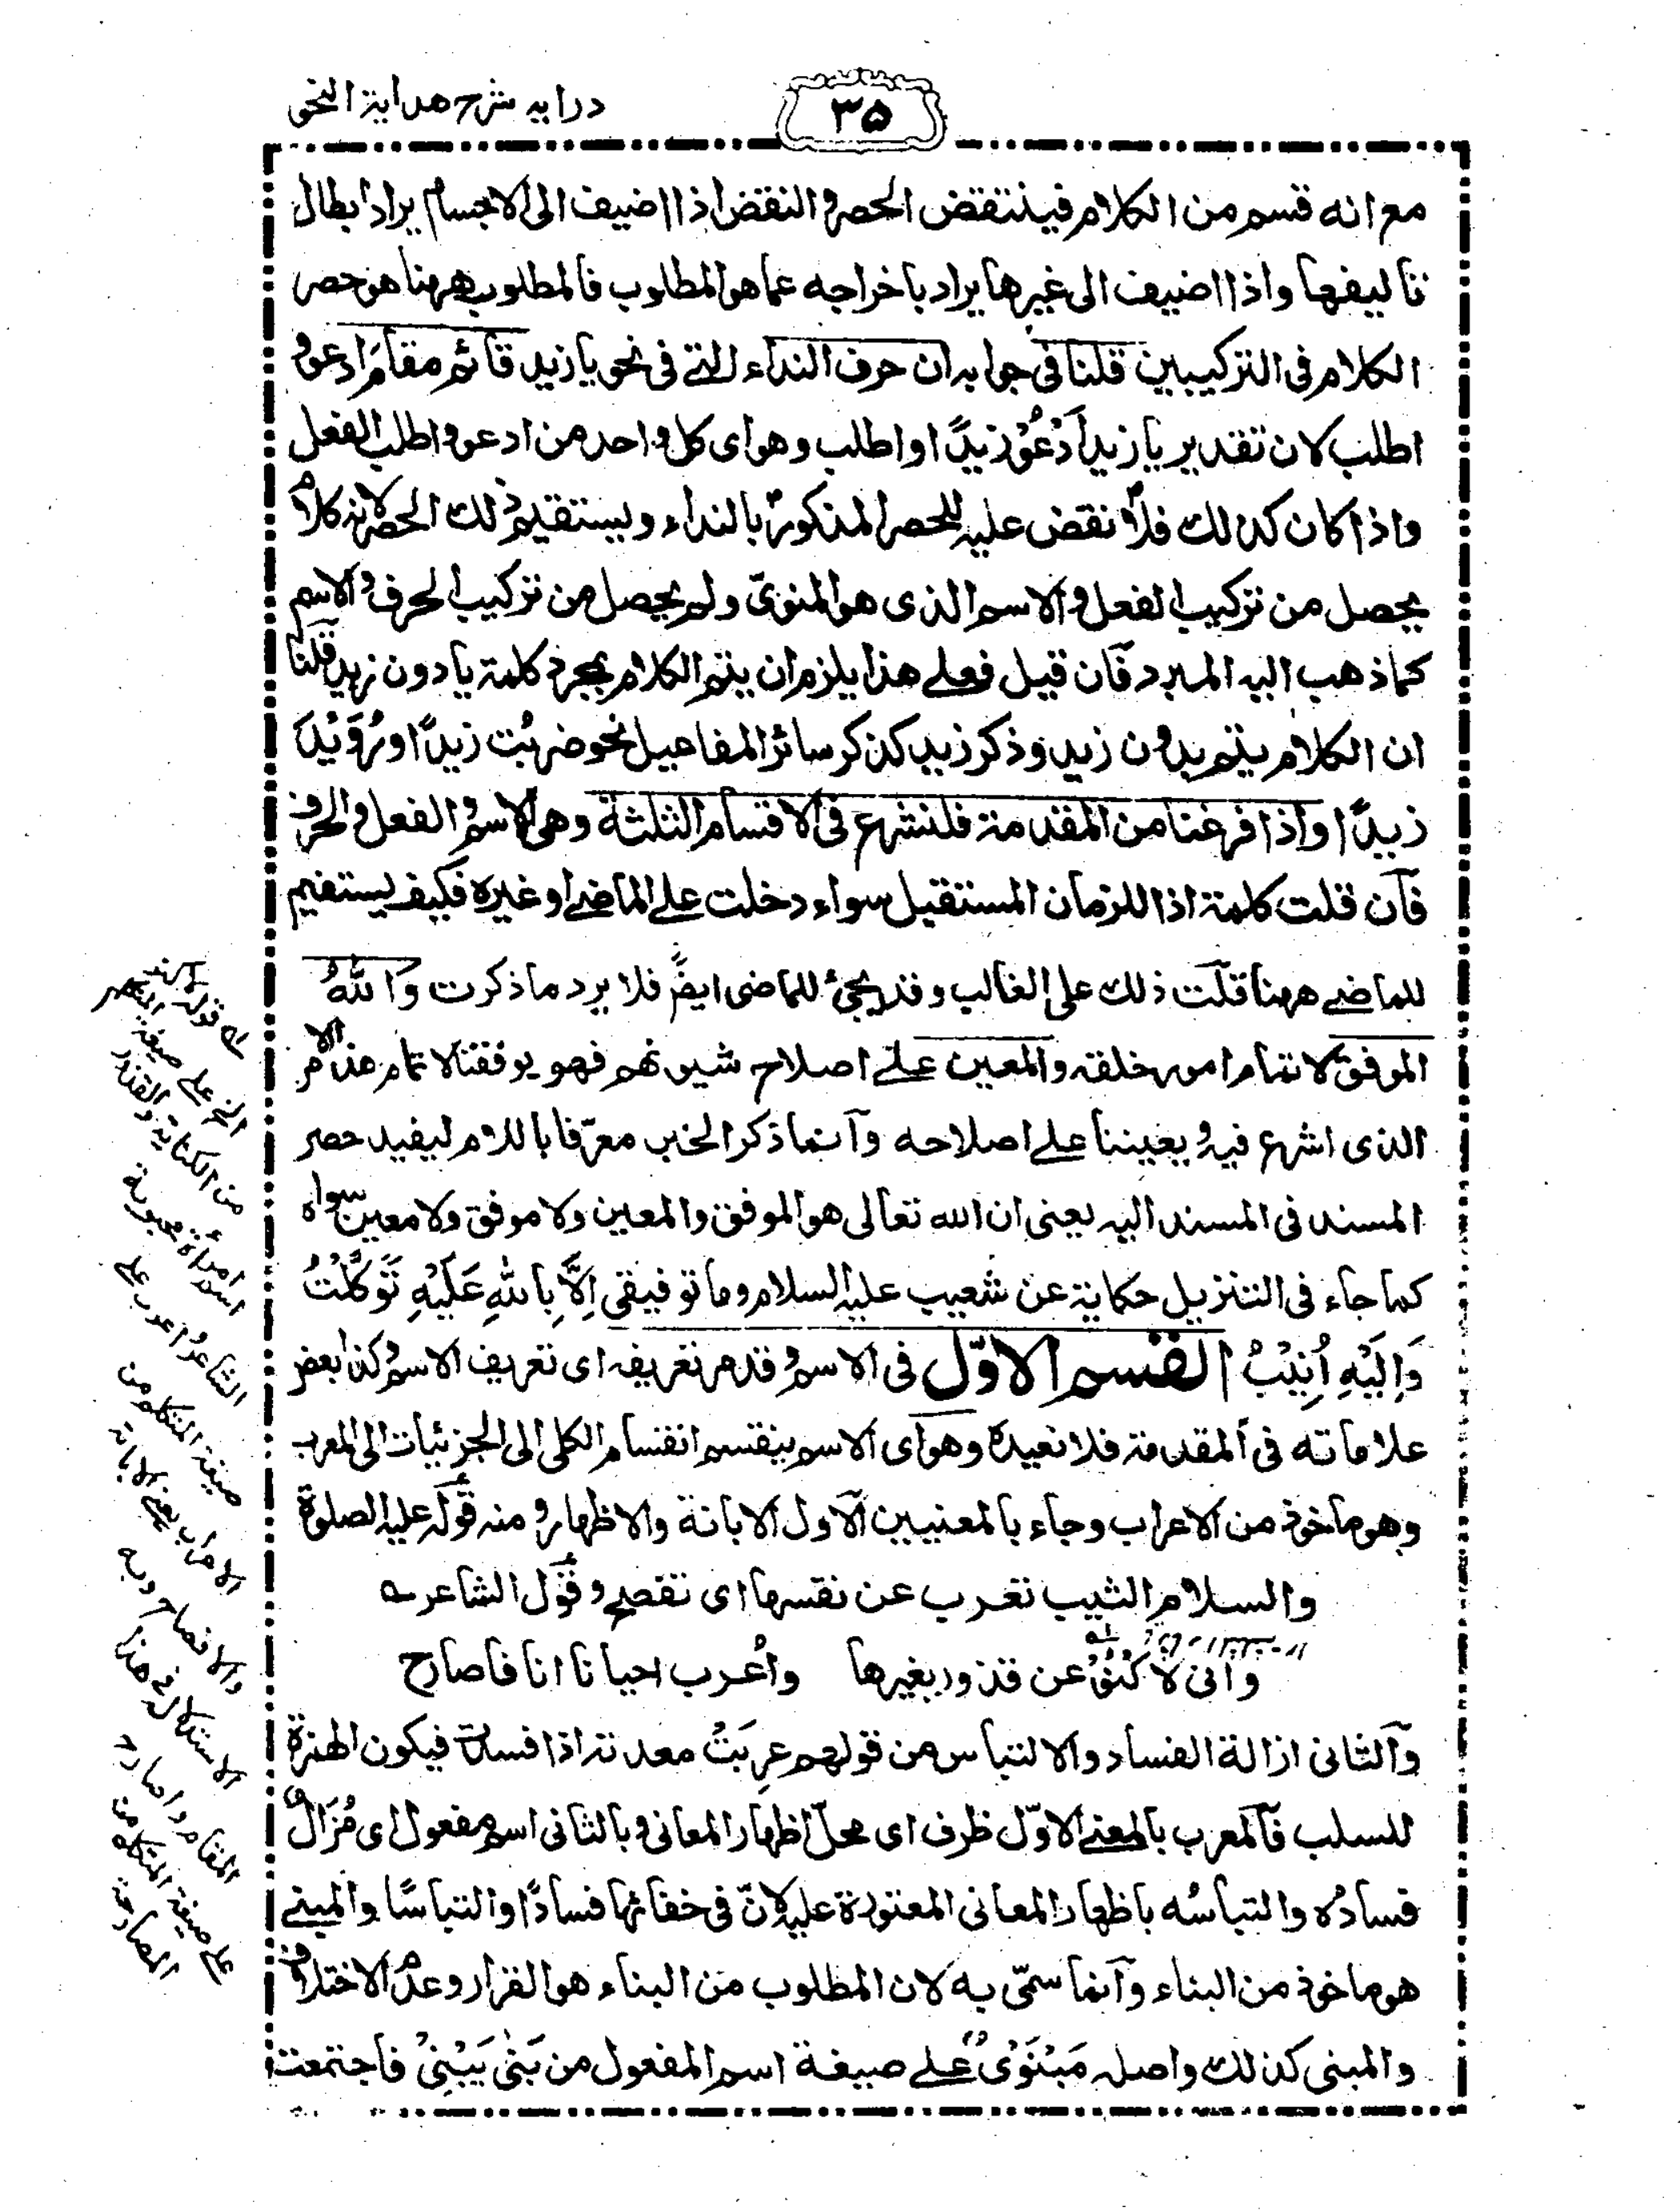 درايه شرح هداية النحو
٣٥
مع انه قسم من الكلام فينتقض الحصر و النقض اذا اضيف الى الاجسام يراد ابطال
تاليفها واذا اضيف الى غيرها يراد باخراجه عما هو المطلوب فالمطلوب ههنا هو حصر
الكلام فى التركيبين قلنا فى جوابه ان حرف النداء التے فى نحو يا زيد قائم مقام ادعو و
اطلب لان تقدير يا زيد اَدْعُوْ زيدًا او اطلب وهو اى كل واحد من ادعو و اطلب الفعل
واذا كان كذلك فلا نقض عليہ للحصر المذكور بالنداء ويستقيم ذلك الحصر لانه كلام
يحصل من تركيب الفعل و الاسم الذى هو المنوىّ ولم يحصل من تركيب الحرف و الاسم
كما ذهب اليه المبرد فان قيل فعلے هذا يلزم ان يتم الكلام بمجرد كلمة يا دون زيد قلنا
ان الكلام يتم بدون زيد وذكر زيد كذكر سائر المفاعيل نحو ضربْت زيدًا او رُوَيْدَ
زيدًا واذا فرغنا من المقدمة فلنشرع فى الاقسام الثلثة وهى الاسم و الفعل و الحرف
فان قلت كلمة اذا للزمان المستقبل سواء دخلت علے الماضے او غيره فكيف يستقيم
للماضے ههنا قلت ذلك على الغالب وقد يجئ للماضى ايضًا فلا يرد ما ذكرت وَاللّٰهُ
الموفق لاتمام امور خلقه والمعين علے اصلاح شيونهم فهو يوفقنا لاتمام هذا الامر
الذى اشرع فيه و يعيننا علے اصلاحه وانما ذكر الخبر معرّفا باللام ليفيد حصر
المسند فى المسند اليه يعنى ان الله تعالى هو الموفق والمعين ولا موفق ولا معين سواه
كما جاء فى التنزيل حكاية عن شعيب عليہ السلام وما توفيقى اِلَّا بِاللّٰهِ عَلَيْهِ تَوَكَّلْتُ
وَاِلَيْهِ اُنِيْبُ القسم الاوّل فى الاسم و قد مر تعريفه اى تعريف الاسم و كذا بعض
علاماته فى المقدمة فلا نعيده وهو اى الاسم ينقسم انقسام الكلى الى الجزئيات الى المعرب
وهو ماخوذ من الاعراب وجاء بالمعنيين الاول الابانة والاظهار و منه قوله عليہ الصلوة
والسلام الثيب تعرب عن نفسها اى تفصح و قول الشاعر ــه
وانى لاكنُوْ عن قذور بغيرها وأعرب احيانا انا فاصارح
والثانى ازالة الفساد والالتباس من قولهم عرِبَتْ معدته اذا فسدت فيكون الهمزة
للسلب فالمعرب بالمعنے الاوّل ظرف اى محلّ اظهار المعانى و بالثانى اسم مفعول اى مُزَالٌ
فسادُه والتباسُه باظهار المعانى المعتورة عليہ لانّ فى خفائها فسادًا والتباسًا والمبنے
هو ماخوذ من البناء وانما سمّى به لان المطلوب من البناء هو القرار وعدم الاختلاف
والمبنى كذلك واصله مَبْنَوْىٌ علے صيغة اسم المفعول من بَنٰى يَبْنِىْ فاجتمعت
له قوله لاكنو
الخ علے صيغة المتكلم
من الكناية والقذور
اسم امرأة محبوبة
الشاعر اعرب علے
صيغة المتكلم من
الاعراب بمعنے الابانة
والافصاح وبه
الاستدلال فى هذا
المقام واصارح
علے صيغة المتكلم من
المصارحة